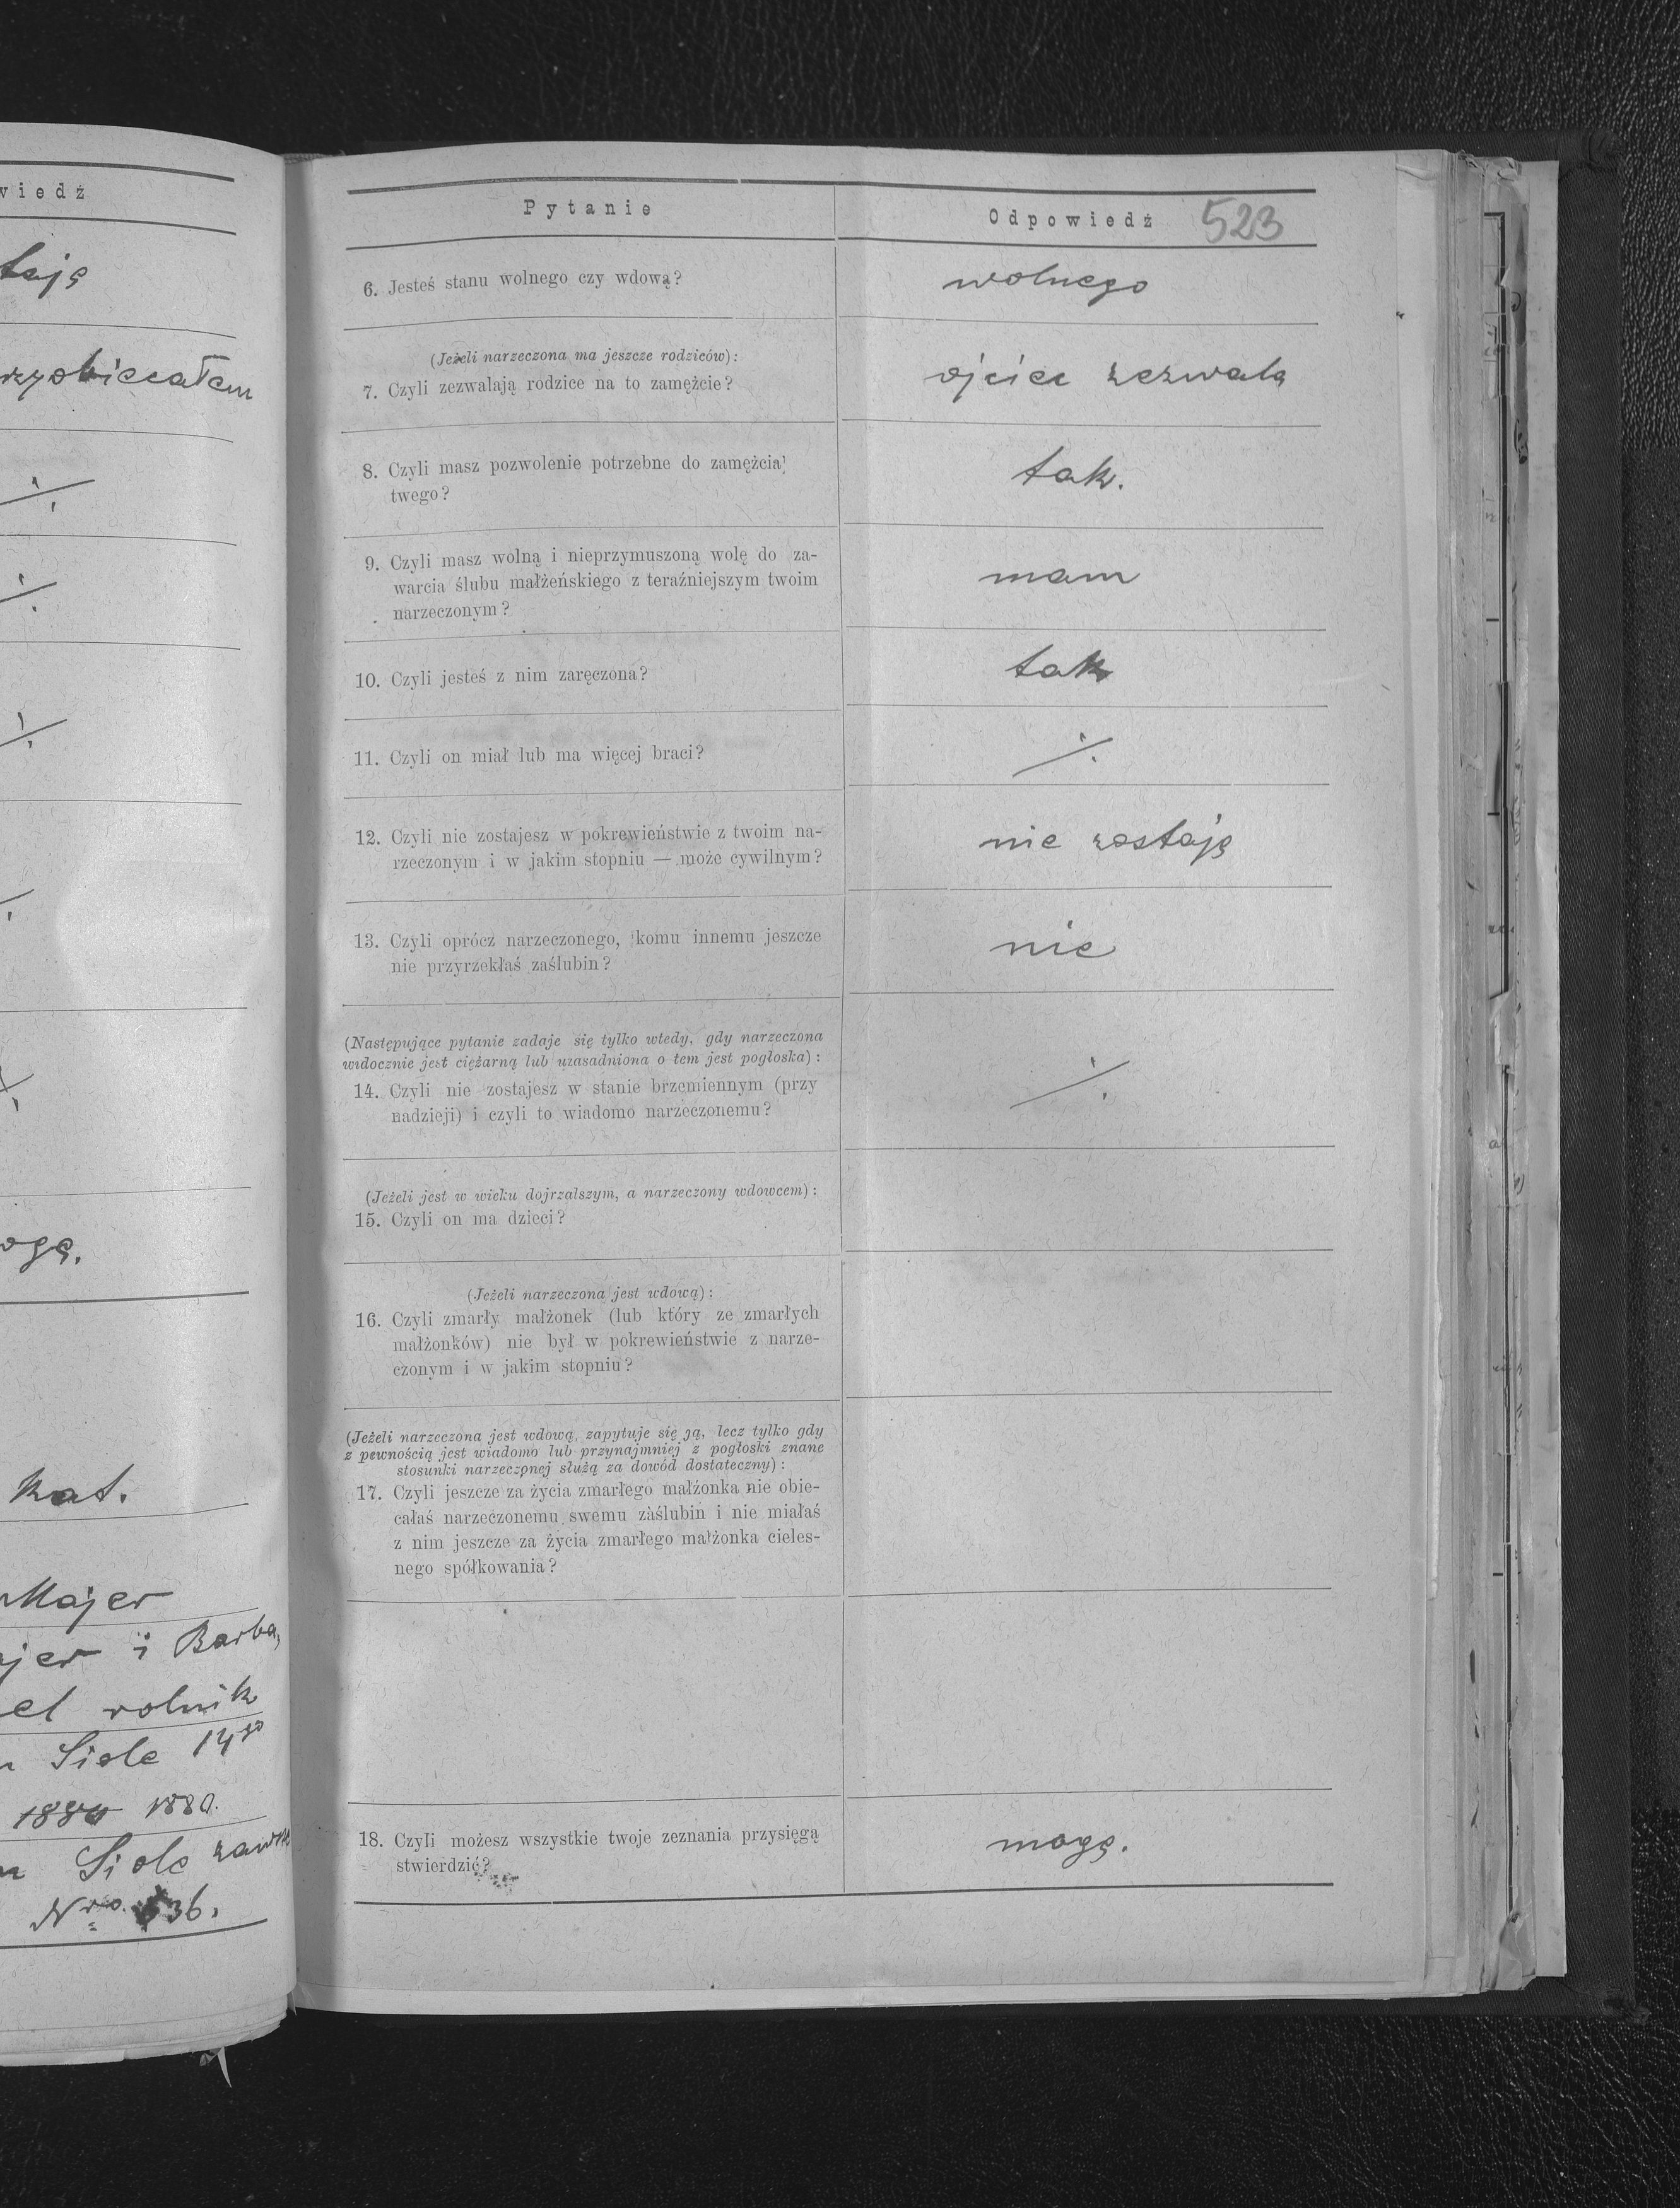 wiedź
tają
rzyobiecałem
ogę.
kat.
Majer
jer i Barba,
el rolnik
Siole 14go
1880.
Siole zawsze
Nro. 36.
Pytanie
Odpowiedź 523
6. Jesteś stanu wolnego czy wdową?
wolnego
(Jeżeli narzeczona ma jeszcze rodziców):
7. Czyli zezwalają rodzice na to zamężcie?
ojciec zezwala
8. Czyli masz pozwolenie potrzebne do zamężcia
twego?
tak.
9. Czyli masz wolną i nieprzymuszoną wolę do za-
warcia ślubu małżeńskiego z teraźniejszym twoim
narzeczonym?
mam
10. Czyli jesteś z nim zaręczona?
tak
11. Czyli on miał lub ma więcej braci?
·/.
12. Czyli nie zostajesz w pokrewieństwie z twoim na-
rzeczonym i w jakim stopniu — może cywilnym?
nie zostaję
13. Czyli oprócz narzeczonego, komu innemu jeszcze
nie przyrzekłaś zaślubin?
nie
(Następujące pytanie zadaje się tylko wtedy, gdy narzeczona
widocznie jest ciężarną lub uzasadniona o tem jest pogłoska):
14. Czyli nie zostajesz w stanie brzemiennym (przy
nadzieji) i czyli to wiadomo narzeczonemu?
·/.
(Jeżeli jest w wieku dojrzalszym, a narzeczony wdowcem):
15. Czyli on ma dzieci?
(Jeżeli narzeczona jest wdową):
16. Czyli zmarły małżonek (lub który ze zmarłych
małżonków) nie był w pokrewieństwie z narze-
czonym i w jakim stopniu?
(Jeżeli narzeczona jest wdową, zapytuje się ją, lecz tylko gdy
z pewnością jest wiadomo lub przynajmniej z pogłoski znane
stosunki narzeczonej służą za dowód dostateczny):
17. Czyli jeszcze za życia zmarłego małżonka nie obie-
całaś narzeczonemu swemu zaślubin i nie miałaś
z nim jeszcze za życia zmarłego małżonka cieles-
nego spółkowania?
18. Czyli możesz wszystkie twoje zeznania przysięgą
stwierdzić?
mogę.